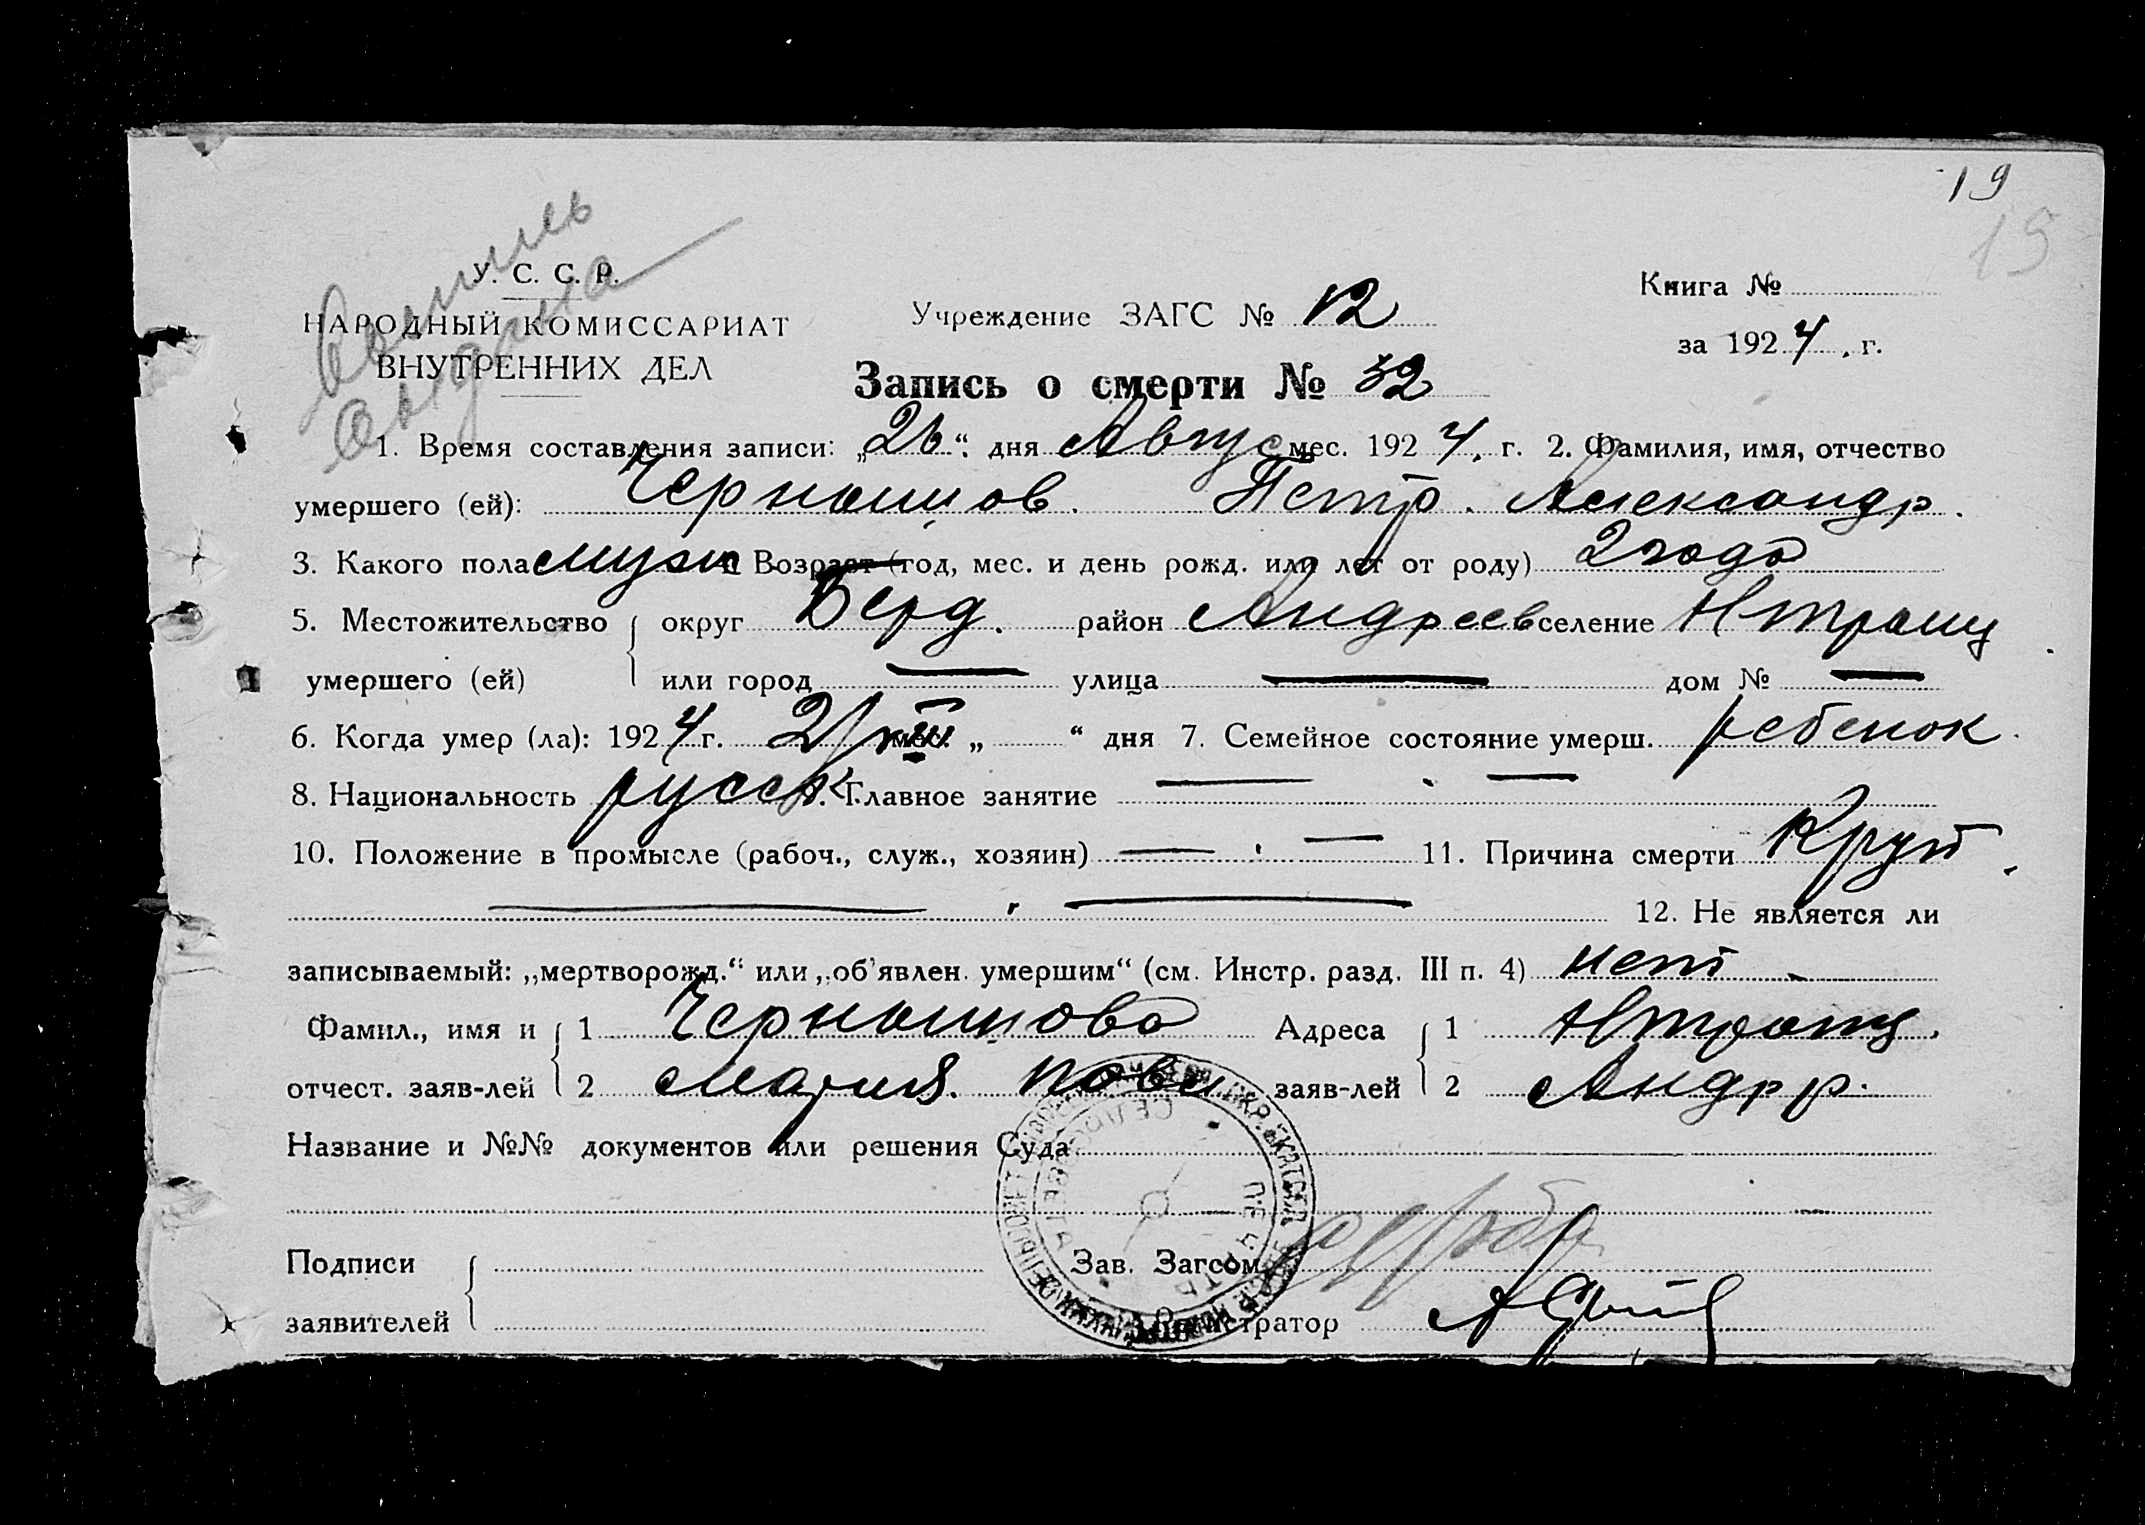 19
15
У. С. С. Р.
НАРОДНЫЙ КОМИССАРИАТ
ВНУТРЕННИХ ДЕЛ
Учреждение ЗАГС № 12
Книга №
за 1924 г.
Запись о смерти № 32
1. Время составления записи: „26“ дня Август мес. 1924. г. 2. Фамилия, имя, отчество
умершего (ей): Чернышов. Петр. Александр.
3. Какого пола муж Возраст (год, мес. и день рожд. или лет от роду) 2 года
5. Местожительство округ Берд. район Андреев селение
умершего (ей) или город — улица — дом № —
6. Когда умер (ла): 1924 г. мес. „ “ дня 7. Семейное состояние умерш. ребенок
8. Национальность русск. Главное занятие — . —
10. Положение в промысле (рабоч., служ., хозяин) — . — 11. Причина смерти Круп.
— . — 12. Не является ли
записываемый: „мертворожд.“ или „об’явлен. умершим“ (см. Инстр. разд. III п. 4) нет
Фамил., имя и 1 Чернышова Адреса 1
отчест. заяв-лей 2 Мария. заяв-лей 2 Андр р.
Название и №№ документов или решения Суда
Подписи Зав. Загсом
заявителей Регистратор
ПЕЧАТЬ